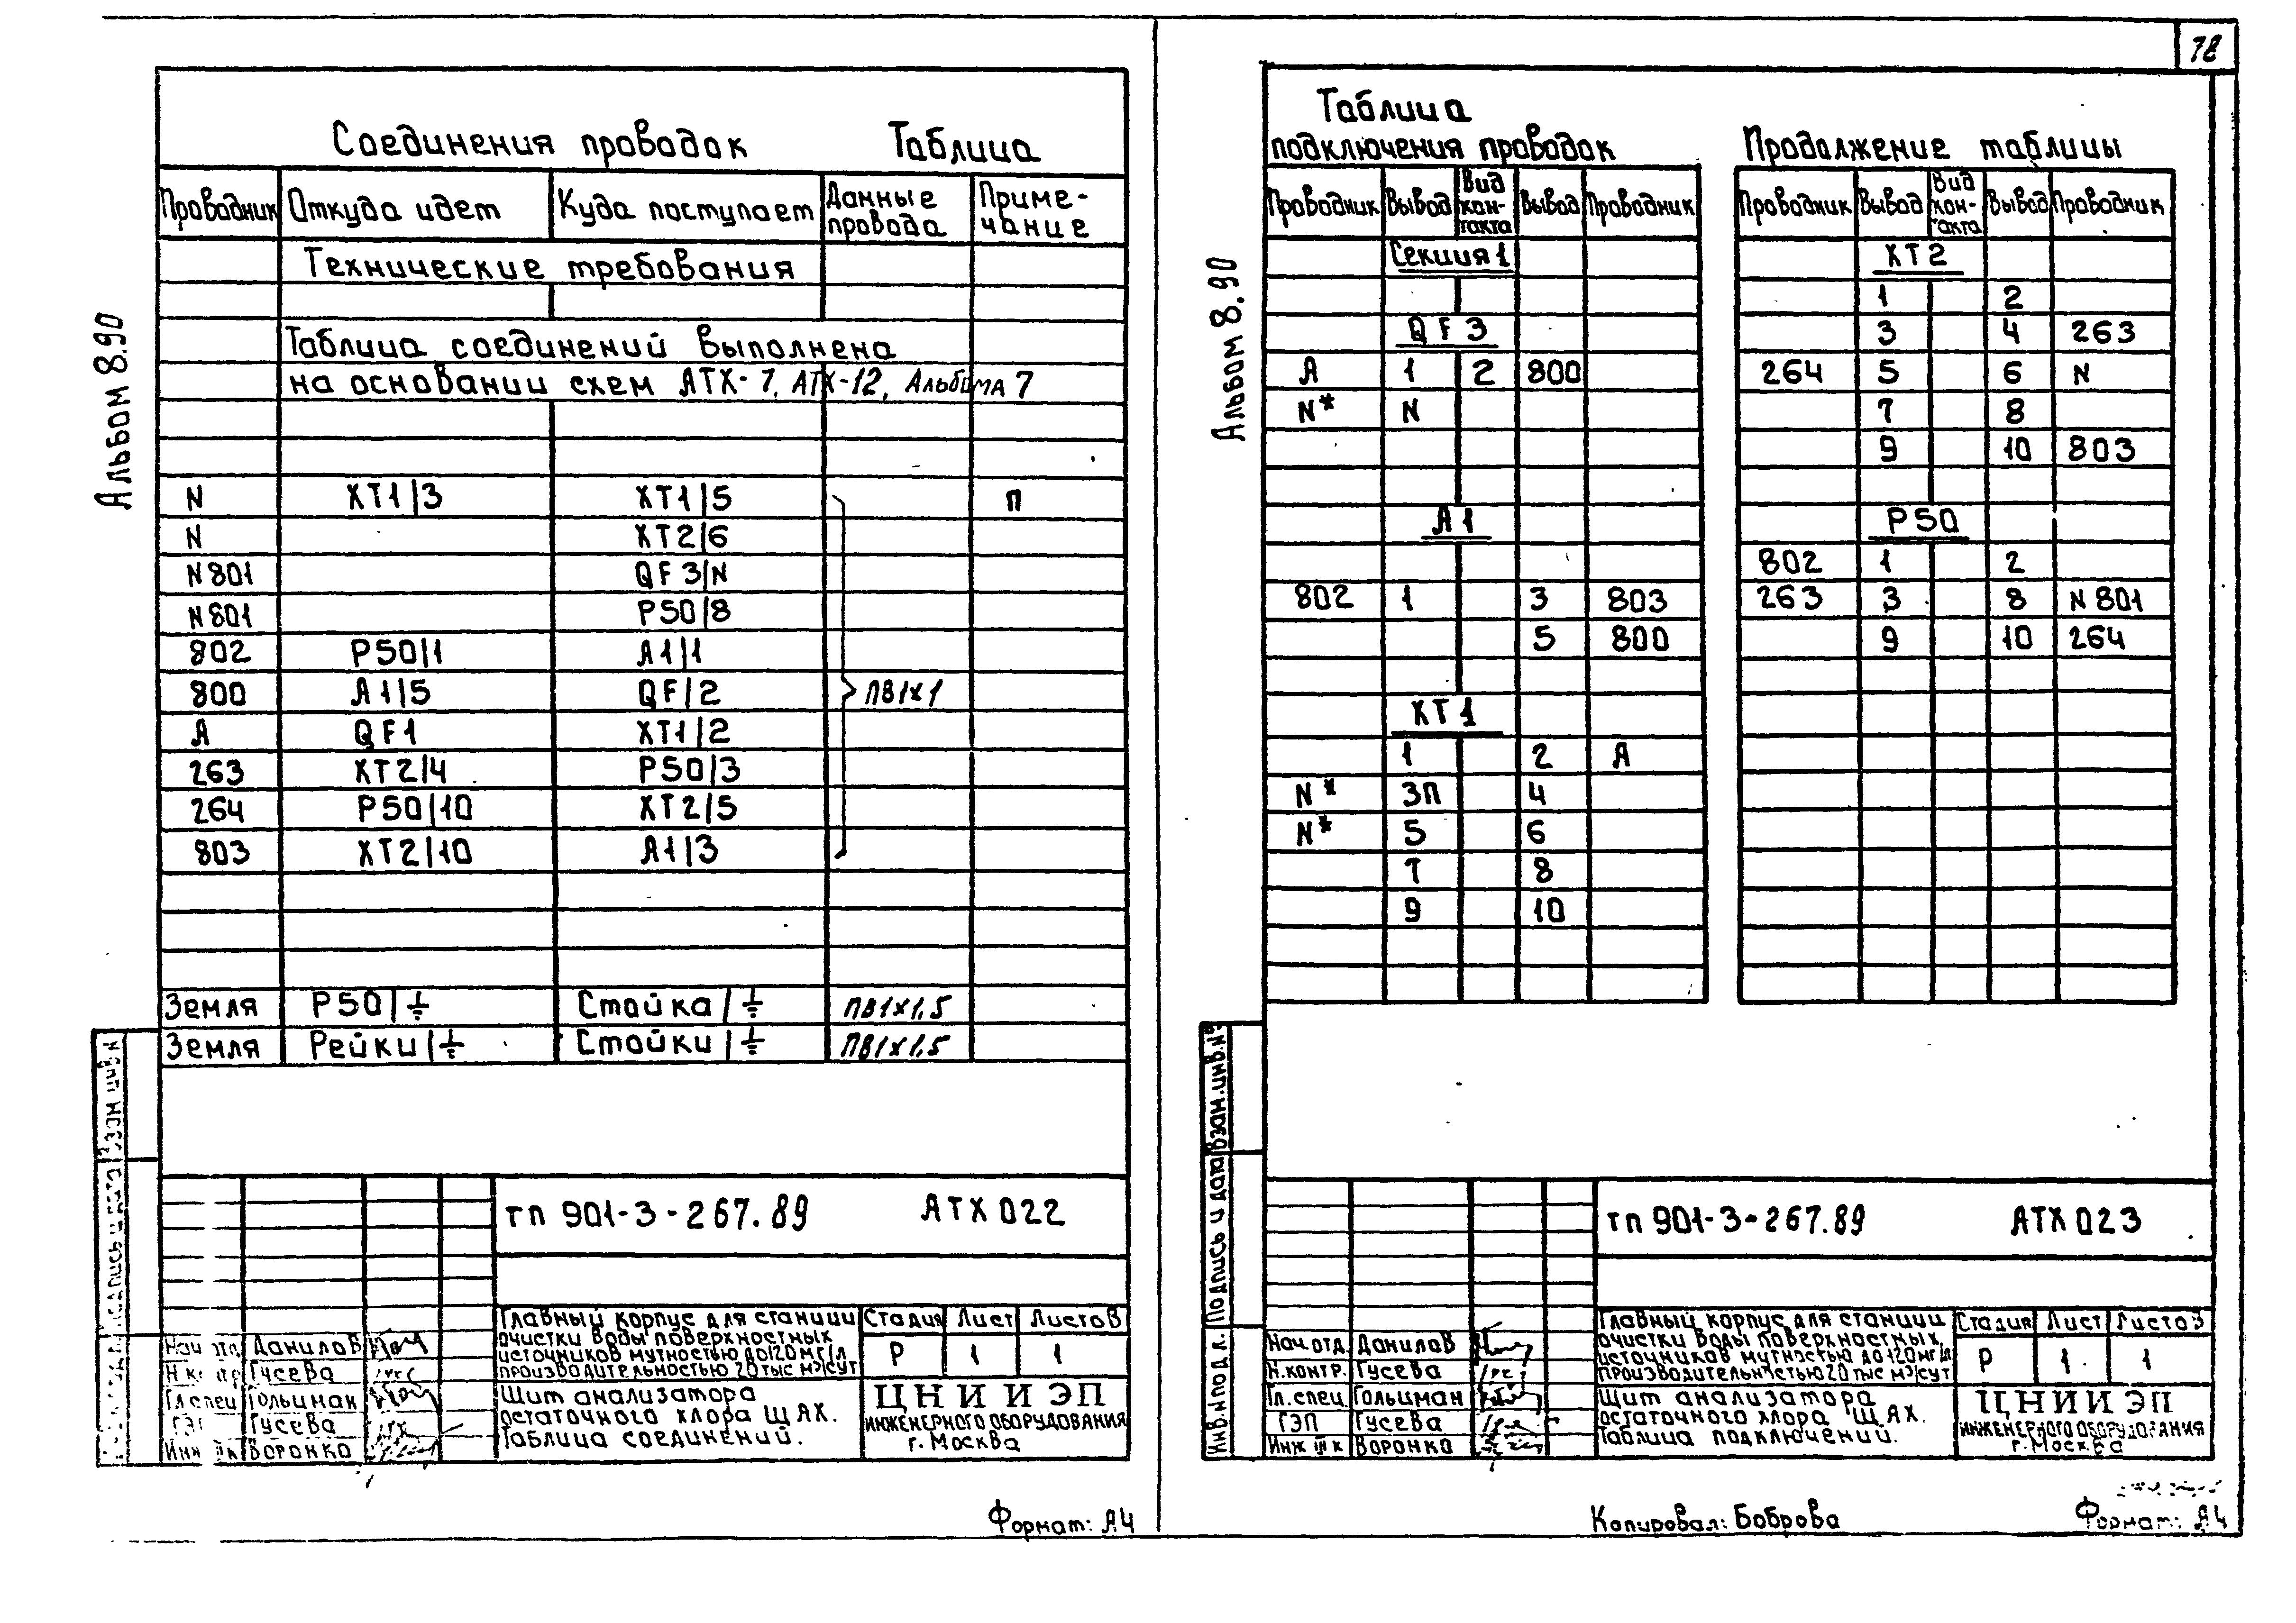 78
Альбом 8.90
Соединения проводок Таблица
Проводник Откуда идет Куда поступает Данные провода Примечание
Технические требования
Таблица соединений выполнена
на основании схем АТХ-7, АТХ-12, Альбома 7
N ХТ1/3 ХТ1/5 П
N ХТ2/6
N801 QF3/N
N801 Р50/8
802 Р50/1 А1/1
800 А1/5 QF/2 ПВ1х1
А QF1 ХТ1/2
263 ХТ2/4 Р50/3
264 Р50/10 ХТ2/5
803 ХТ2/10 А1/3
Земля Р50/⏚ Стойка/⏚ ПВ1х1,5
Земля Рейки/⏚ Стойки/⏚ ПВ1х1,5
Взам. инв. №
Подпись и дата
тп 901-3-267.89 АТХ022
Главный корпус для станции
очистки воды поверхностных
источников мутностью до 120 мг/л
производительностью 20 тыс м³/сут
Стадия Лист Листов
Р 1 1
Нач. отд. Данилов
Н.контр. Гусева
Гл.спец Гольцман
ГЭП Гусева
Инж II к Воронко
Щит анализатора
остаточного хлора ЩАХ.
Таблица соединений.
ЦНИИЭП
инженерного оборудования
г. Москва
Формат: А4
Альбом 8.90
Таблица
подключения проводок
Проводник Вывод Вид контакта Вывод Проводник
Секция 1
QF3
А 1 2 800
N* N
А1
802 1 3 803
5 800
ХТ1
1 2 А
N* 3П 4
N* 5 6
7 8
9 10
Продолжение таблицы
Проводник Вывод Вид контакта Вывод Проводник
ХТ2
1 2
3 4 263
264 5 6 N
7 8
9 10 803
Р50
802 1 2
263 3 8 N801
9 10 264
Взам.инв.№
Подпись и дата
Инв.№ подл.
тп 901-3-267.89 АТХ023
Главный корпус для станции
очистки воды поверхностных
источников мутностью до 120 мг/л
производительностью 20 тыс м³/сут
Стадия Лист Листов
Р 1 1
Нач.отд. Данилов
Н.контр. Гусева
Гл.спец. Гольцман
ГЭП Гусева
Инж II к Воронко
Щит анализатора
остаточного хлора ЩАХ.
Таблица подключений.
ЦНИИЭП
инженерного оборудования
г. Москва
Копировал: Боброва
Формат: А4